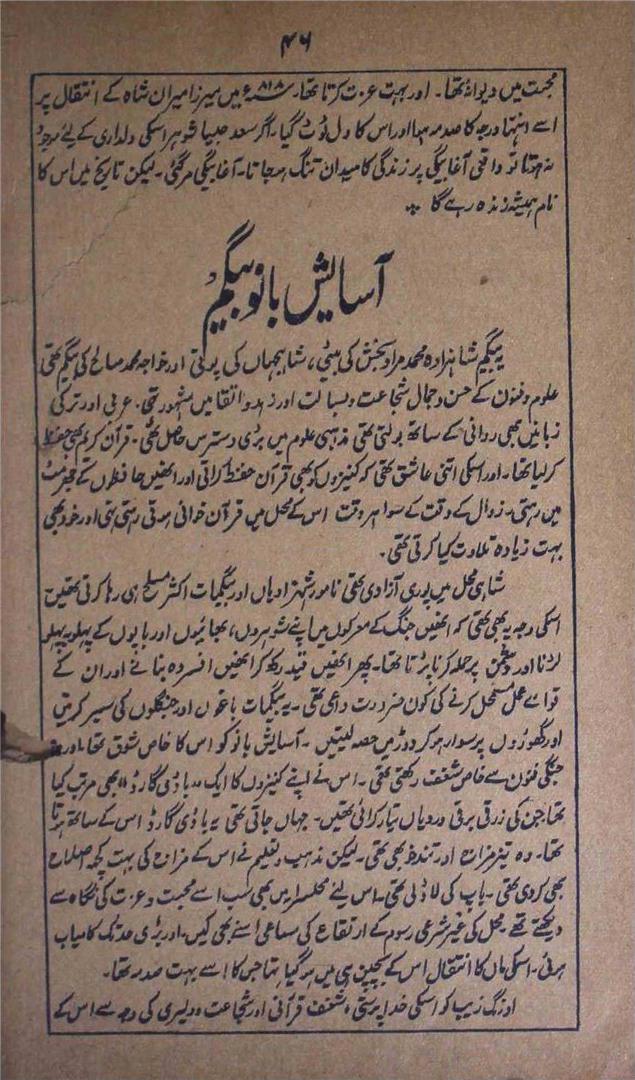 ۴۶
محبت میں دیوانہ تھا۔ اور بہت عزت کرتا تھا۔ ۸۱۸ء میں میرزا میران شاہ کے انتقال پر
اسے انتہا درجہ کا صدمہ ہوا اور اس کا دل ٹوٹ گیا۔ اگر سعد جیسا شوہر اسکی دلداری کے لئے موجود
نہ ہوتا تو واقعی آغا بیگی پر زندگی کا میدان تنگ ہو جاتا۔ آغا بیگی مر گئی۔ لیکن تاریخ میں اس کا
نام ہمیشہ زندہ رہے گا
آسایش بانو بیگم
یہ بیگم شاہزادہ محمد مراد بخش کی بیٹی، شاہجہاں کی پوتی اور خواجہ محمد صالح کی بیگم تھی
علوم و فنون کے حسن و جمال شجاعت و بسالت اور زہد و اتقا میں مشہور تھی۔ عربی اور ترکی
زبانیں بھی روانی کے ساتھ بولتی تھی مذہبی علوم میں بڑی دسترس حاصل تھی۔ قرآن کریم بھی حفظ
کر لیا تھا۔ اور اسکی اتنی عاشق تھی کہ کنیزوں کو بھی قرآن حفظ کراتی اور انھیں حافظوں کے جھرمٹ
میں رہتی۔ زوال کے وقت کے سوا ہر وقت اس کے محل میں قرآن خوانی ہوتی رہتی تھی اور خود بھی
بہت زیادہ تلاوت کیا کرتی تھی۔
شاہی محل میں پوری آزادی تھی نامور شہزادیاں اور بیگمیات اکثر مسلح ہی رہا کرتی تھیں
اسکی وجہ یہ بھی تھی کہ انھیں جنگ کے معرکوں میں اپنے شوہروں، بھائیوں اور باپوں کے پہلو بہ پہلو
لڑنا اور دشمن پر حملہ کرنا پڑتا تھا۔ پھر انھیں قید رکھ کر انھیں افسردہ بنانے اور ان کے
قوائے عمل مضمحل کرنے کی کون ضرورت داعی تھی۔ یہ بیگمیات باغوں اور جنگلوں کی سیر کرتیں
اور گھوڑوں پر سوار ہو کر دوڑ میں حصہ لیتیں۔ آسایش بانو کو اس کا خاص شوق تھا۔ اور
جنگی فنون سے خاص شغف رکھتی تھی۔ اس نے اپنے کنیزوں کا ایک "باڈی گارڈ" بھی مرتب کیا
تھا جن کی زرق برق وردیاں تیار کرائی تھیں۔ جہاں جاتی تھی یہ باڈی گارڈ اس کے ساتھ ہوتا
تھا۔ وہ تیز مزاج اور تندخو بھی تھی۔ لیکن مذہب و تعلیم نے اس کے مزاج کی بہت کچھ اصلاح
بھی کر دی تھی۔ باپ کی لاڈلی تھی۔ اس لئے محلسرا میں بھی سب اسے محبت و عزت کی نگاہ سے
دیکھتے تھے۔ محل کی غیر شرعی رسوم کے ارتفاع کی مساعی اسنے بھی کیں۔ اور بڑی حد تک کامیاب
ہوئی۔ اسکی ماں کا انتقال اس کے بچپن ہی میں ہو گیا تھا جس کا اسے بہت صدمہ تھا۔
اورنگ زیب کو اسکی خدا پرستی، شغف قرآنی اور شجاعت و دلیری کی وجہ سے اس کے